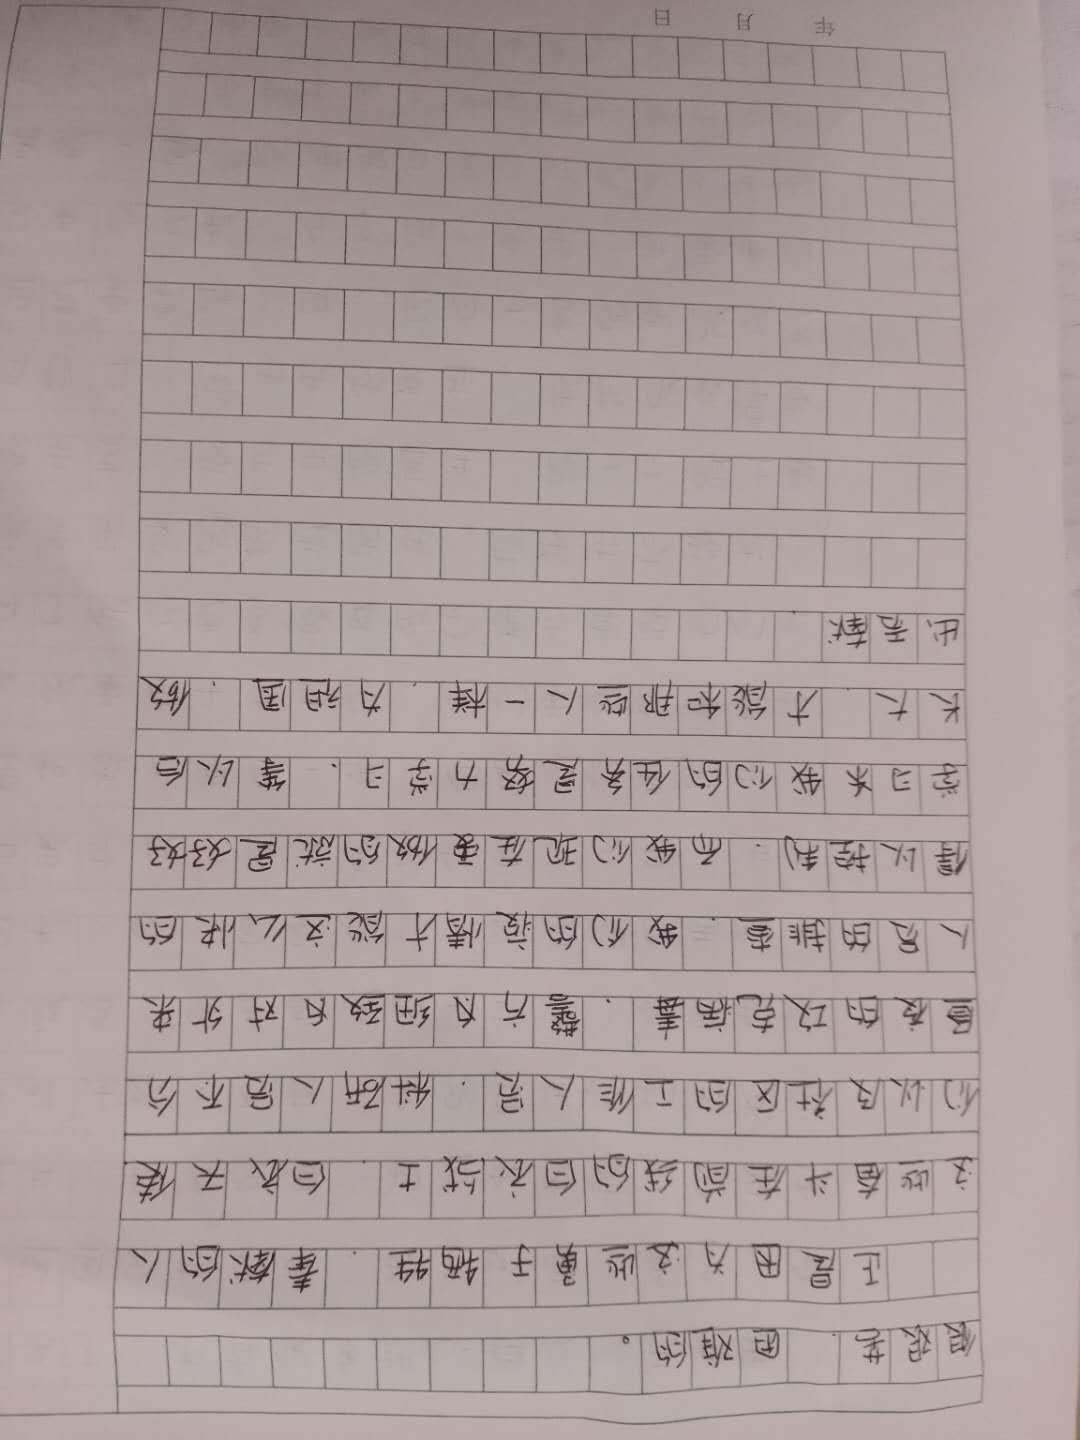 很艰苦.困难的。
正是因为这些勇于牺牲.奉献的人
这些奋斗在前线的白衣战士.白衣天使
们以及社区的工作人员.科研人员不分
昼夜的攻克病毒.警方细致对外来
人员的排查.我们的疫情才能这么快的
得以控制.而我们现在要做的就是好好
学习我们的任务是努力学习.等以后
长大.才能和那些人一样.为祖国.做
出贡献.
年 月 日